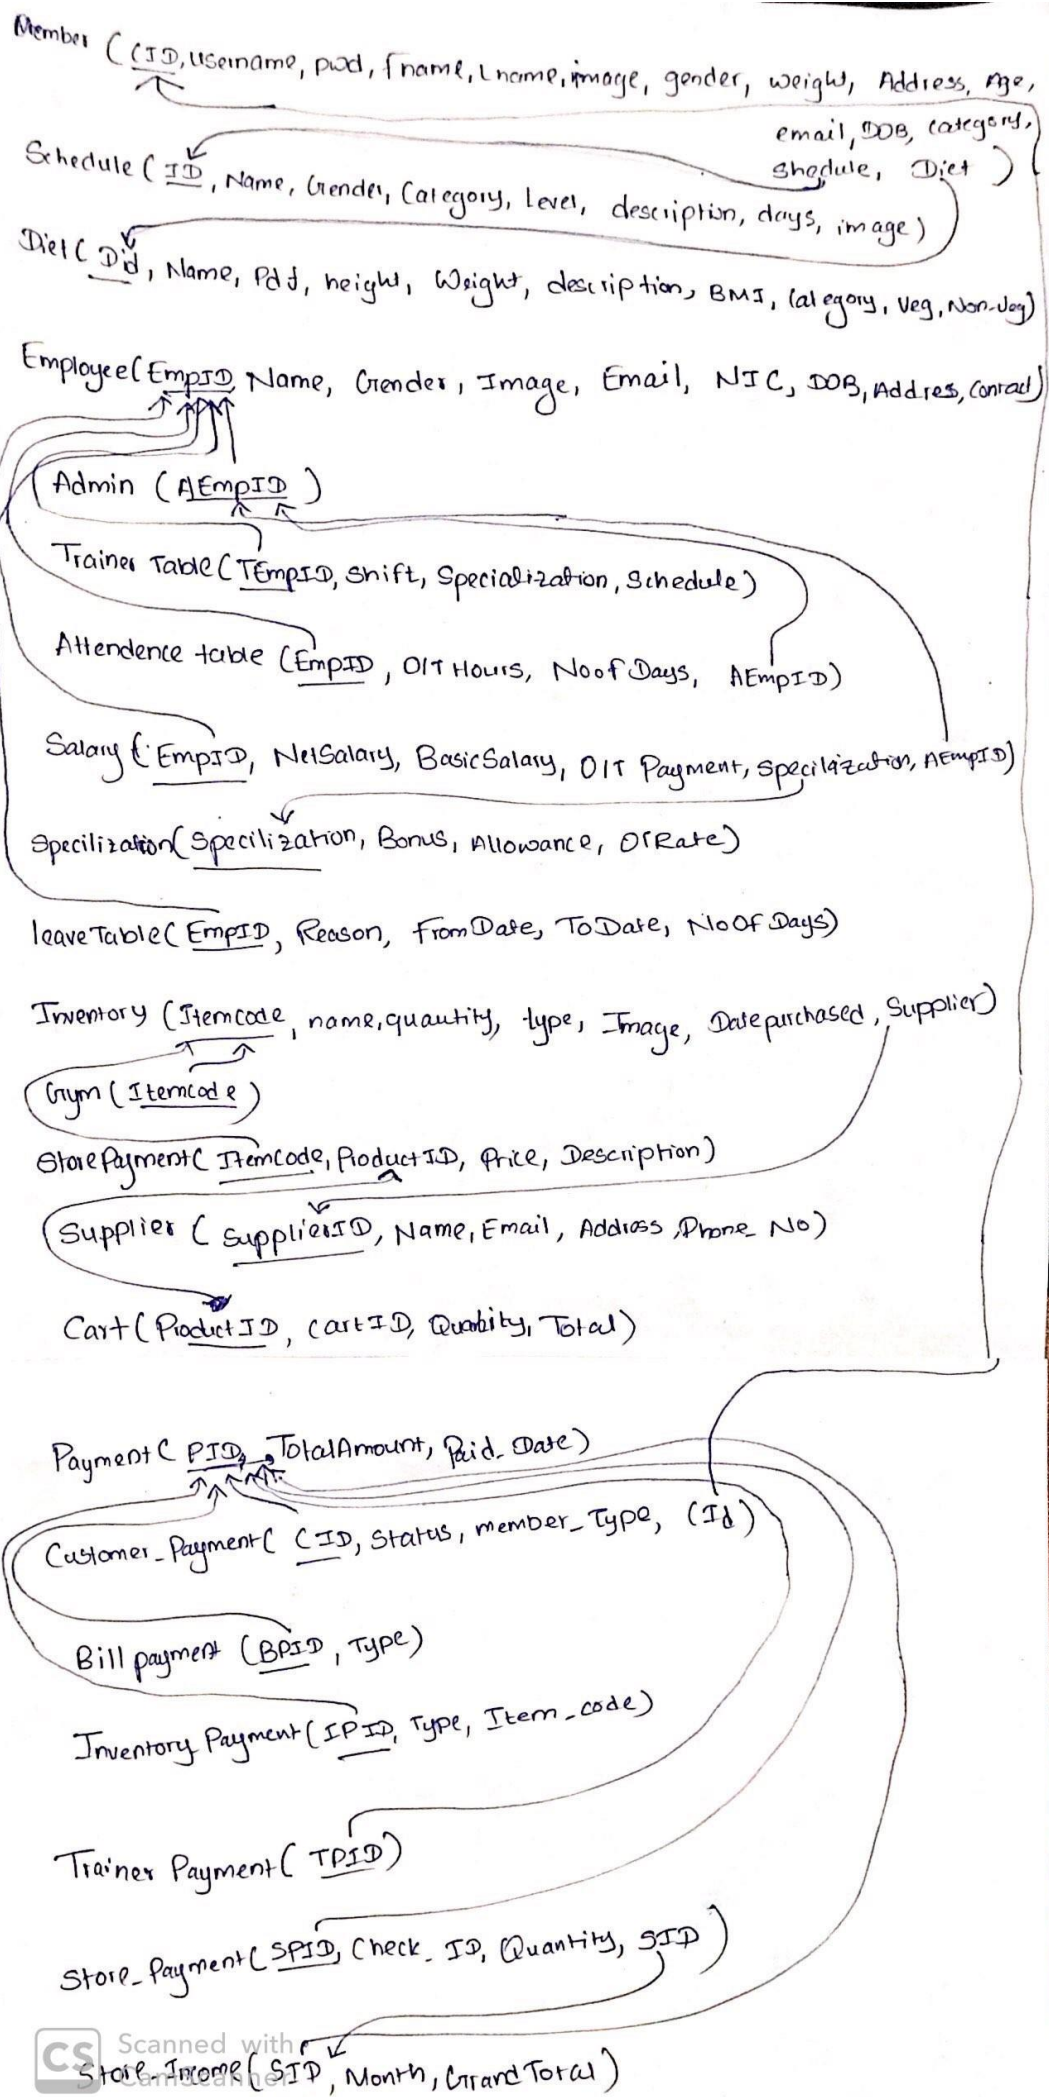 Member (CID, username, pwd, fname, Lname, image, gender, weight, Address, Age,
email, DOB, category,
Shedule, Diet)
Schedule (ID, Name, Gender, Category, Level, description, days, image)
Diet (Did, Name, Pdf, height, Weight, description, BMI, Category, Veg, Non-Veg)
Employee (EmpID, Name, Gender, Image, Email, NIC, DOB, Addres, Contact)
Admin (AEmpID)
Trainer Table (TEmpID, Shift, Specialization, Schedule)
Attendence table (EmpID, O/T Hours, No of Days, AEmpID)
Salary (EmpID, NetSalary, Basic Salary, O/T Payment, Specilization, AEmpID)
Specilization (Specilization, Bonus, Allowance, OTRate)
leave Table (EmpID, Reason, From Date, To Date, No Of Days)
Inventory (Itemcode, name, quantity, type, Image, Date purchased, Supplier)
Gym (Itemcode)
Store Payment (ItemCode, Product ID, Price, Description)
Supplier (SupplierID, Name, Email, Address, Phone_No)
Cart (Product ID, CartID, Quantity, Total)
Payment (PID, TotalAmount, Paid_Date)
Customer_Payment (CID, Status, member_Type, (Id)
Bill payment (BPID, Type)
Inventory Payment (IPID, Type, Item_code)
Trainer Payment (TPID)
Store_Payment (SPID, Check_ID, Quantity, SID)
CS Scanned with
CamScanner
Store_Income (SID, Month, Grand Total)